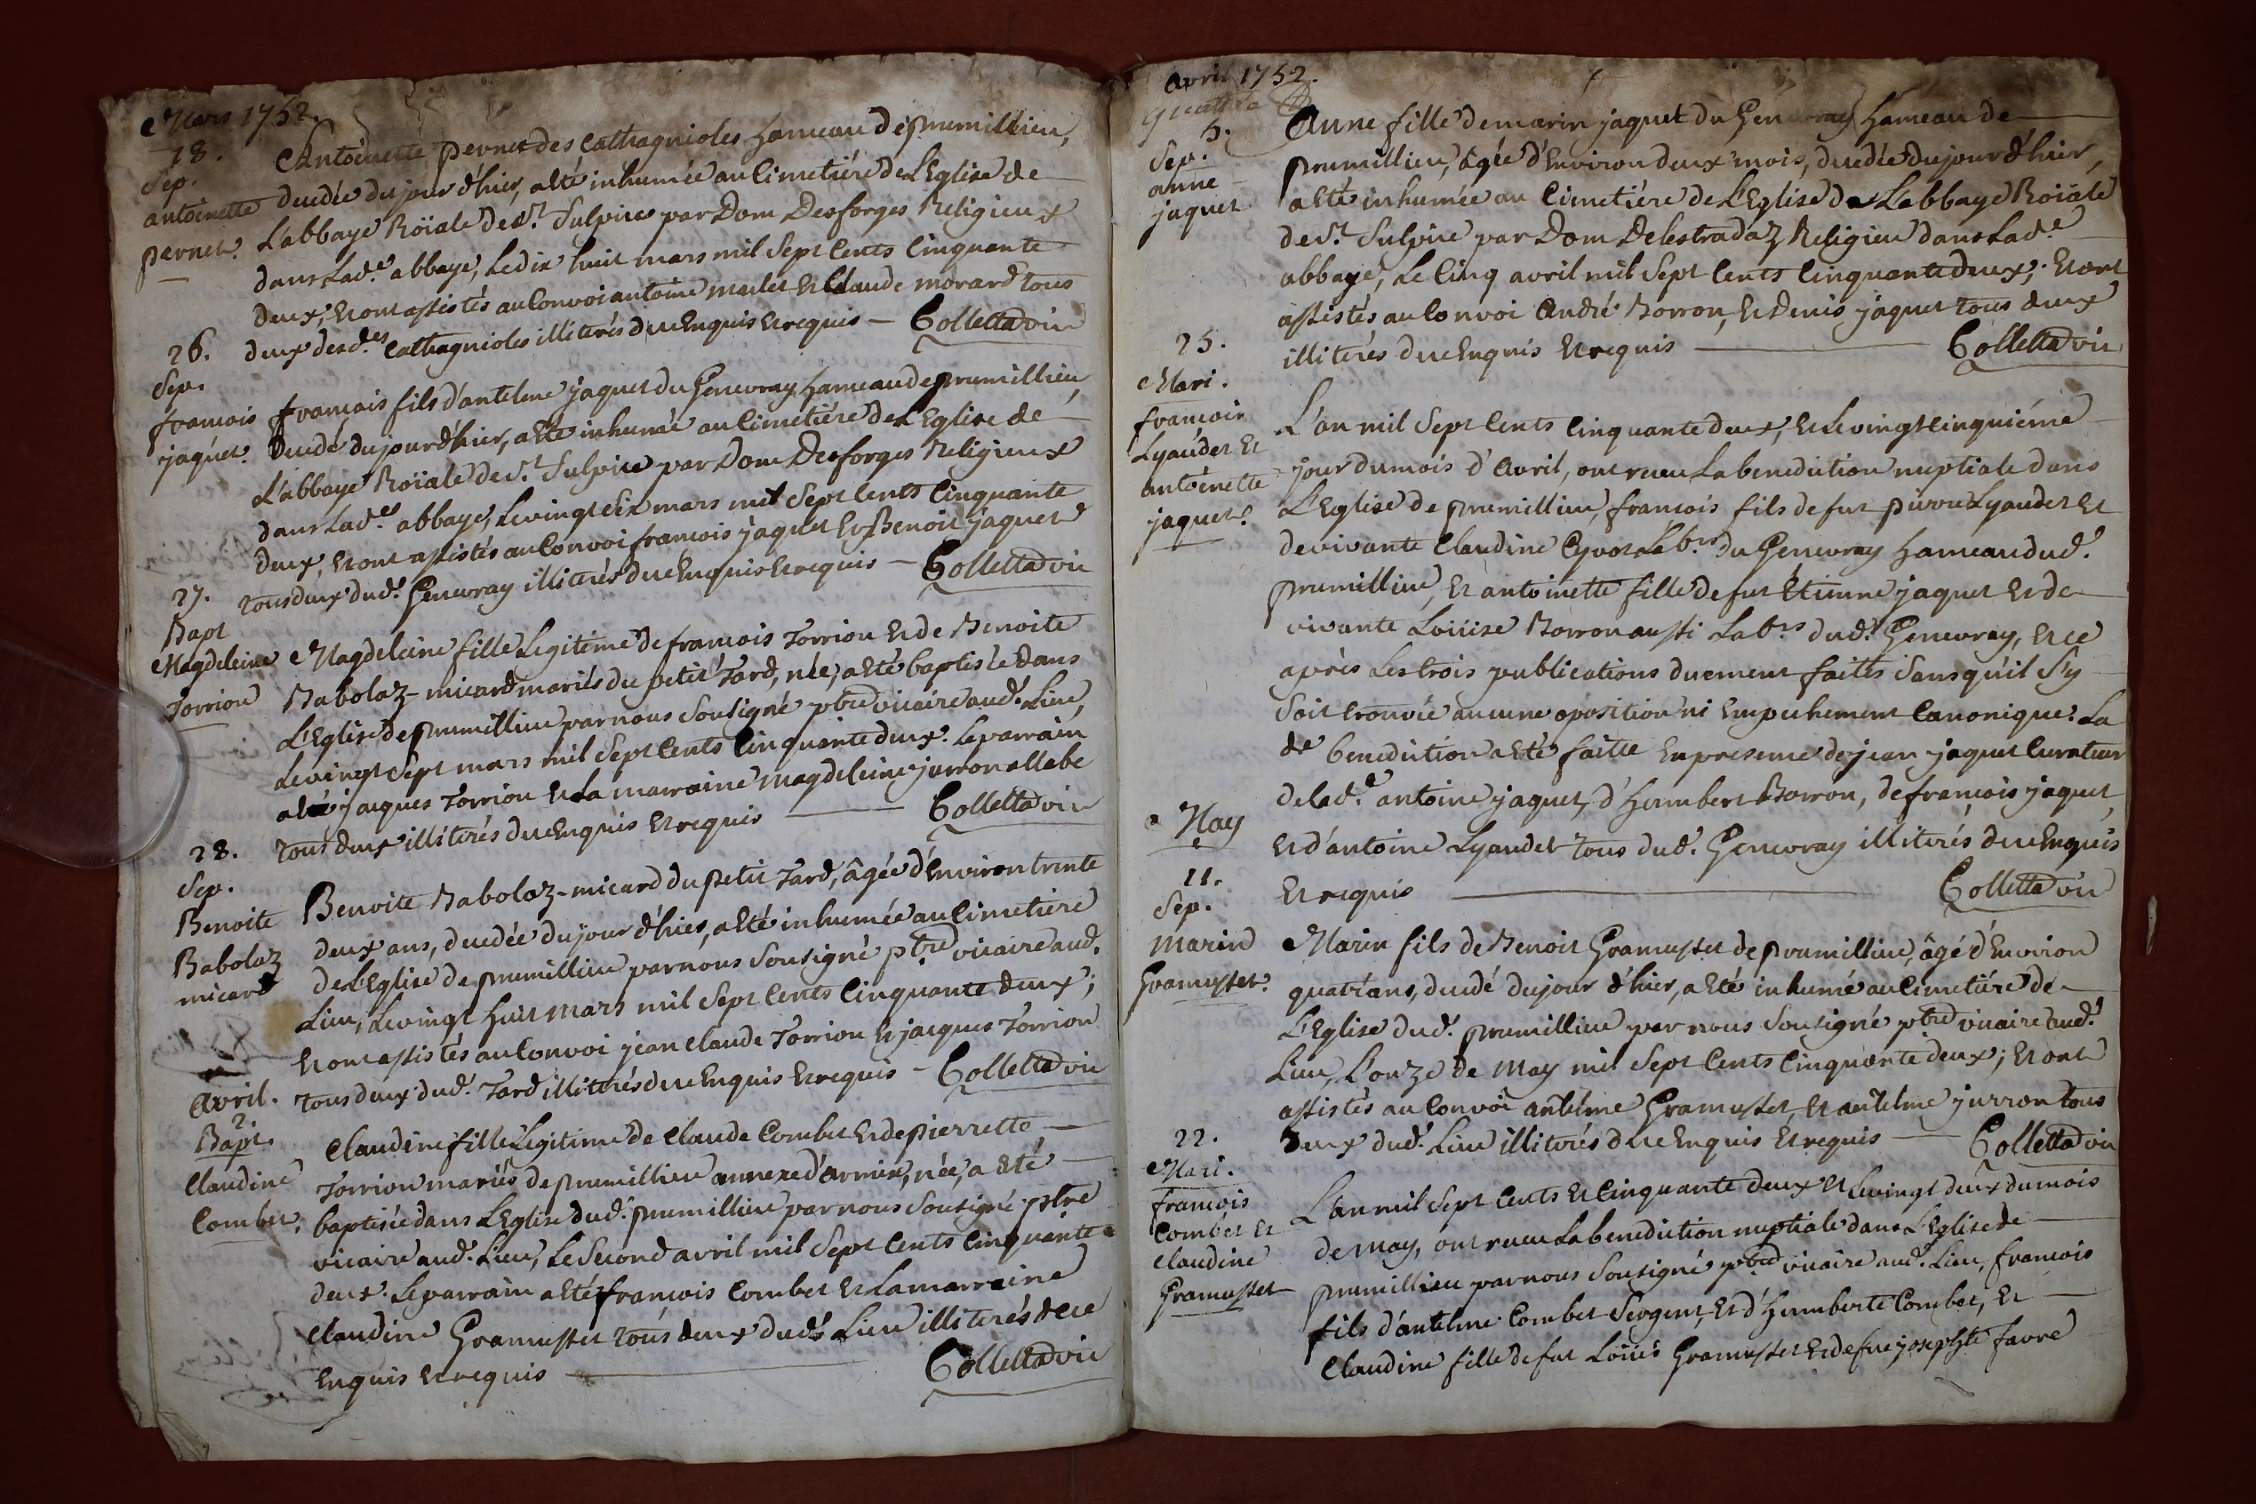 Mars 1752.
18.
Sep.
antoinette
pernet.
Antoinette pernet des Cathagnioles hameau de prumillieu,
decedée du jour d'hier, a été inhumée au Cimetiére de L'Eglise de
L'abbaye Roïale de St. Sulpice par Dom Desforges Religieux
dans lad.e abbaye, le dix huit mars mil Sept Cents Cinquante
deux; et ont assistés au Convoi antoine marlet et Claude morard tous
deux desd.es Cathagnioles illiterés de ce Enquis et requis — Colletta vic
26.
Sep.
francois
jaquet.
francois fils d'antelme jaquet du Genevray hameau de prumillieu,
decedé du jour d'hier, a été inhumé au Cimetiére de L'Eglise de
L'abbaye Roïale de St. Sulpice par Dom Desforges Religieux
dans lad.e abbaye, le vingt six mars mil Sept Cents Cinquante
deux, et ont assistés au Convoi francois jaquet et Benoit jaquet
tous deux dud. Genevray illiterés de ce Enquis et requis — Colletta vic
27.
Bapt
Magdeleine
Torrion
Magdeleine fille Legitime de francois Torrion et de Benoite
Babolaz-micard mariés du petit Tard, née, a été baptisée dans
L'Eglise de prumillieu par nous Sousigné ptre vicaire aud. Lieu,
le vingt Sept mars mil Sept Cents Cinquante deux. Le parrain
a été jacques Torrion et la marraine magdeleine jurron allabe
tous deux illiterés de ce Enquis et requis — Colletta vic
28.
Sep.
Benoite
Babolaz
micard
Benoite Babolaz-micard du petit Tard, âgée d'Environ trente
deux ans, decedée du jour d'hier, a été inhumée au Cimetiére
de L'Eglise de prumillieu par nous Sousigné ptre vicaire aud.
Lieu, le vingt huit mars mil Sept Cents Cinquante deux;
et ont assistés au Convoi jean claude Torrion et jacques Torrion
tous deux dud. Tard illiterés de ce Enquis et requis — Colletta vic
avril.
2.
Bapt.
Claudine
Combet.
Claudine fille Legitime de Claude Combet et de pierrette
Torrion mariés de prumillieu annexe d'armix, née, a été
baptisée dans L'Eglise dud. prumillieu par nous Sousigné ptre
vicaire aud. Lieu, le Second avril mil Sept Cents Cinquante
deux. Le parrain a été francois Combet et la marraine
Claudine Gramusset tous deux dud. Lieu illiterés de ce
Enquis et requis — Colletta vic
avril 1752.
5.
Sep.
anne
jaquet
Anne fille de marin jaquet du Genevray hameau de
prumillieu, âgée d'Environ deux mois, decedée du jour d'hier,
a été inhumée au Cimetiére de L'Eglise de Labbaye Roïale
de St. Sulpice par Dom Delestradaz Religieu dans lad.e
abbaye, le Cinq avril mil Sept Cents Cinquante deux; et ont
assistés au Convoi André Borron, et Denis jaquet tous deux
illiterés de ce Enquis et requis — Colletta vic
25.
Mari.
francois
Lyaudet et
antoinette
jaquet.
L'an mil Sept Cents Cinquante deux, et le vingt cinquiéme
jour du mois d'avril, ont recu La benediction nuptiale dans
L'Eglise de prumillieu, francois fils de fut pierre Lyaudet et
de vivante Claudine Cyvoct Lab.rs du Genevray hameau dud.
prumillieu, et antoinette fille de fut Étienne jaquet et de
vivante Loüise Borron aussi Lab.rs dud. Genevray, et ce
aprés Les trois publications duement faites Sans qu'il s'y
Soit trouvée aucune oposition ni Empechement Canonique. La
de benediction a été faitte En presence de jean jaquet Curateur
de lad.e antoine jaquet, d'humbert Borron, de francois jaquet,
et d'antoine Lyaudet tous dud. Genevray illiterés de ce Enquis
et requis — Colletta vic
May
11.
Sep.
Marin
Gramusset.
Marin fils de Benoit Gramusset de prumillieu, âgé d'Environ
quatr'ans, decedé du jour d'hier, a été inhumé au Cimetiére de
L'Eglise dud. prumillieu par nous Sousigné ptre vicaire aud.
Lieu, L'onze de May mil Sept Cents Cinquante deux; et ont
assistés au Convoi antelme Gramusset, et antelme jurron tous
deux dud. Lieu illiterés de ce Enquis et requis — Colletta vic
22.
Mari.
francois
Combet et
Claudine
Gramusset
L'an mil Sept Cents et Cinquante deux et le vingt deux du mois
de may, ont recu La benediction nuptiale dans L'Eglise de
prumillieu par nous Sousigné ptre vicaire aud. Lieu, francois
fils d'antelme Combet Sergent, et d'humberte Combet, et
Claudine fille de fut Loüis Gramusset et de fue josephte favre